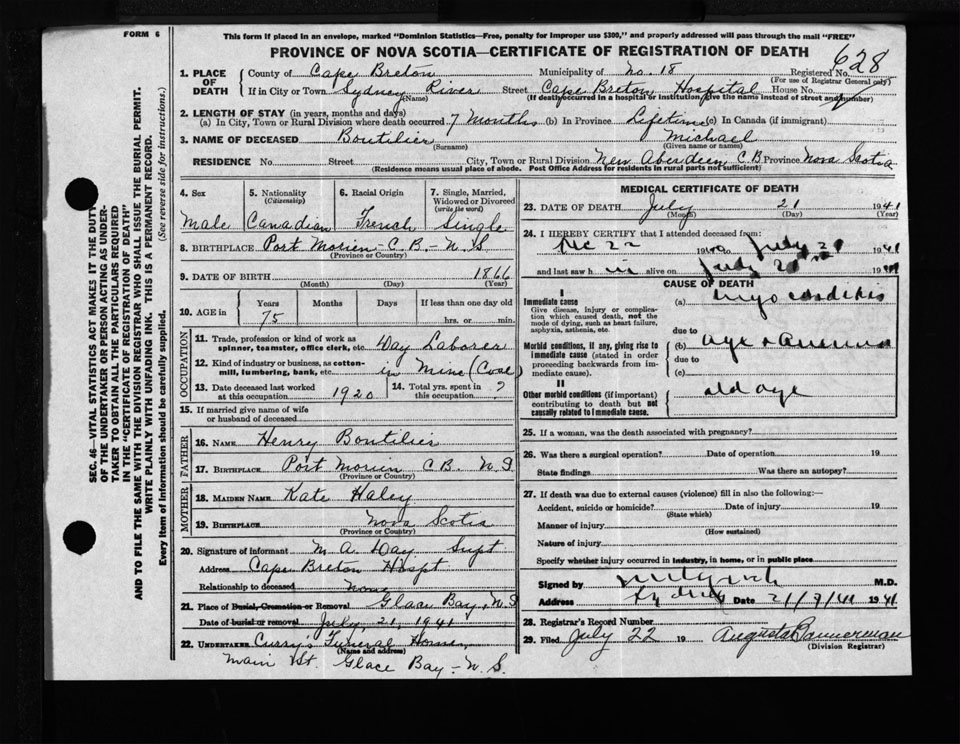 FORM 6
This form if placed in an envelope, marked "Dominion Statistics—Free, penalty for improper use $300," and properly addressed will pass through the mail "FREE"
PROVINCE OF NOVA SCOTIA—CERTIFICATE OF REGISTRATION OF DEATH
628
1. PLACE OF DEATH County of Cape Breton Municipality of No. 18 Registered No.
(For use of Registrar General only)
If in City or Town Sydney River Street Cape Breton Hospital House No.
(Name) (If death occurred in a hospital or institution, give the name instead of street and number)
2. LENGTH OF STAY (in years, months and days)
(a) In City, Town or Rural Division where death occurred 7 months (b) In Province Lifetime (c) In Canada (if immigrant)
3. NAME OF DECEASED Boutilier Michael
(Surname) (Given name or names)
RESIDENCE No. Street City, Town or Rural Division New Aberdeen, C.B. Province Nova Scotia
(Residence means usual place of abode. Post Office Address for residents in rural parts not sufficient)
4. Sex 5. Nationality (Citizenship) 6. Racial Origin 7. Single, Married, Widowed or Divorced (write the word)
Male Canadian French Single
8. BIRTHPLACE Port Morien - C.B. - N.S.
(Province or Country)
9. DATE OF BIRTH 1866
(Month) (Day) (Year)
10. AGE in Years Months Days If less than one day old
75 hrs. or min.
OCCUPATION
11. Trade, profession or kind of work as spinner, teamster, office clerk, etc. Day Laborer
12. Kind of industry or business, as cotton-mill, lumbering, bank, etc. in Mine (Coal)
13. Date deceased last worked at this occupation 1920 14. Total yrs. spent in this occupation ?
15. If married give name of wife or husband of deceased
FATHER
16. NAME Henry Boutilier
17. BIRTHPLACE Port Morien C.B. N.S
(Province or Country)
MOTHER
18. MAIDEN NAME Kate Haley
19. BIRTHPLACE Nova Scotia
(Province or Country)
20. Signature of informant M. A. Day Supt
Address Cape Breton Hospt
Relationship to deceased None
21. Place of Burial, Cremation or Removal Glace Bay, N.S
Date of burial or removal July, 21, 1941
22. UNDERTAKER Curry's Funeral Home,
(Name and address)
Main St. Glace Bay - N.S.
MEDICAL CERTIFICATE OF DEATH
23. DATE OF DEATH July 21 1941
(Month) (Day) (Year)
24. I HEREBY CERTIFY that I attended deceased from:
Dec 22 1940 to July 21 1941
and last saw h im alive on July 1941
CAUSE OF DEATH
I
Immediate cause (a) myocarditis
Give disease, injury or complication which caused death, not the mode of dying, such as heart failure, asphyxia, asthenia, etc.
due to
Morbid conditions, if any, giving rise to immediate cause (stated in order proceeding backwards from immediate cause). (b) age
due to
(c)
II
Other morbid conditions (if important) contributing to death but not causally related to immediate cause. old age
25. If a woman, was the death associated with pregnancy?
26. Was there a surgical operation? Date of operation 19
State findings Was there an autopsy?
27. If death was due to external causes (violence) fill in also the following:—
Accident, suicide or homicide? Date of injury 19
(State which)
Manner of injury
(How sustained)
Nature of injury
Specify whether injury occurred in industry, in home, or in public place
Signed by M.D.
Address Sydney Date 21/7/41 1941
28. Registrar's Record Number
29. Filed July 22 19 Augusta Bannerman
(Division Registrar)
SEC. 46—VITAL STATISTICS ACT MAKES IT THE DUTY
OF THE UNDERTAKER OR PERSON ACTING AS UNDER-
TAKER TO OBTAIN ALL THE PARTICULARS REQUIRED
IN THE "CERTIFICATE OF REGISTRATION OF DEATH"
AND TO FILE THE SAME WITH THE DIVISION REGISTRAR WHO SHALL ISSUE THE BURIAL PERMIT.
WRITE PLAINLY WITH UNFADING INK. THIS IS A PERMANENT RECORD.
Every item of Information should be carefully supplied. (See reverse side for instructions.)